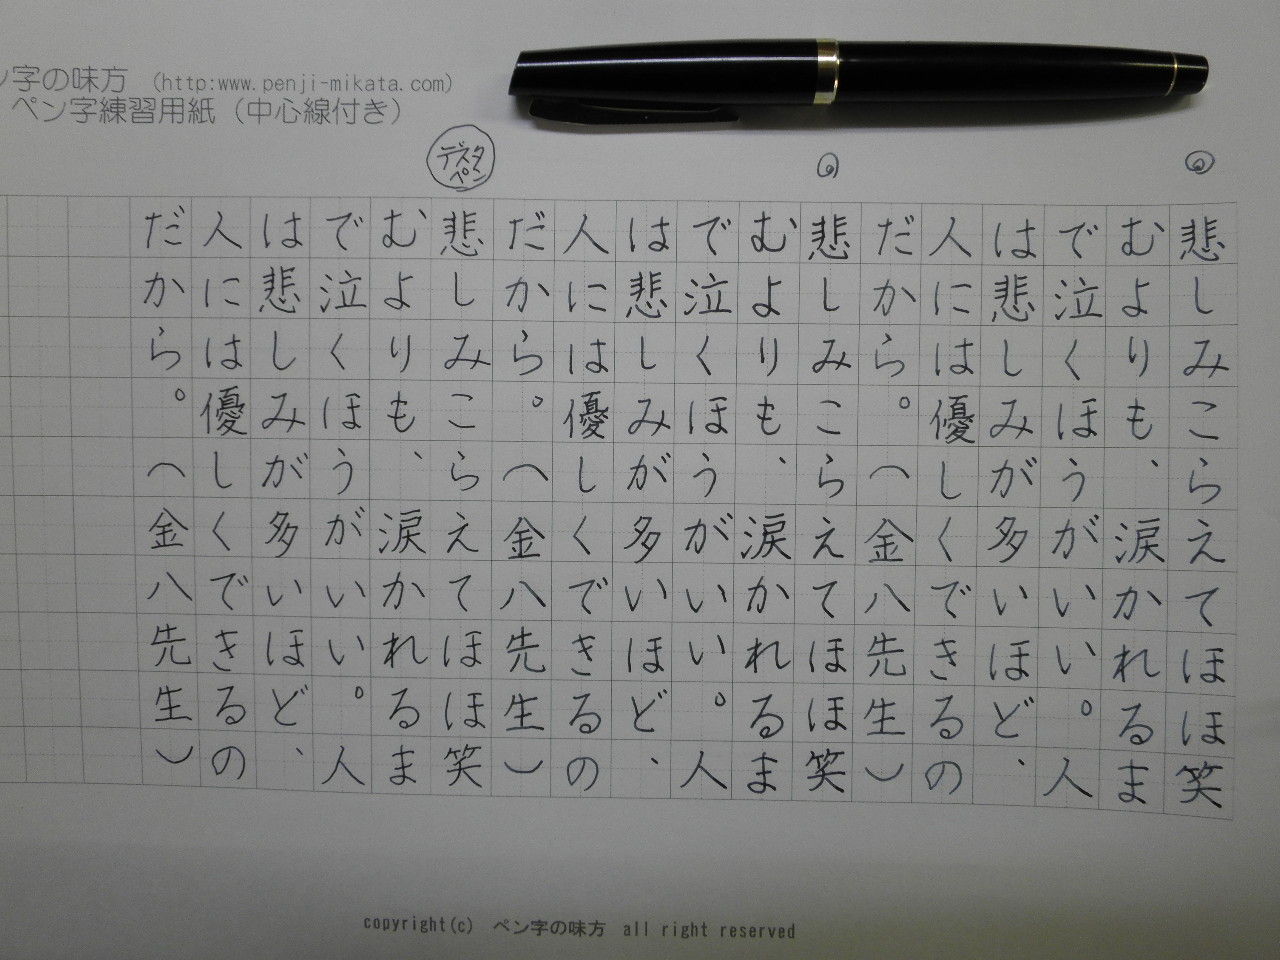 ン字の味方 (http:www.penji-mikata.com)
ペン字練習用紙（中心線付き）
悲しみこらえてほほ笑
むよりも、涙かれるま
で泣くほうがいい。人
は悲しみが多いほど、
人には優しくできるの
だから。（金八先生）
悲しみこらえてほほ笑
むよりも、涙かれるま
で泣くほうがいい。人
は悲しみが多いほど、
人には優しくできるの
だから。（金八先生）
デスク
ペン
悲しみこらえてほほ笑
むよりも、涙かれるま
で泣くほうがいい。人
は悲しみが多いほど、
人には優しくできるの
だから。（金八先生）
copyright(c) ペン字の味方 all right reserved